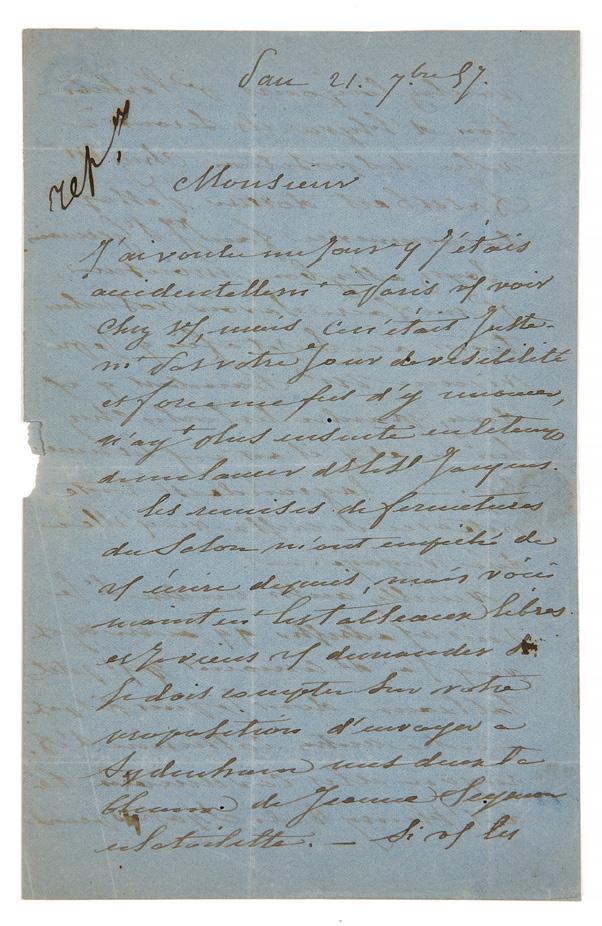 Pau 21. 7bre 57.
rep.
Monsieur
J'ai voulu un jour q j'étais
accidentellemt à Paris vs voir
chez vs, mais ce n'était juste-
mt pas votre jour de visibilité
et force me fut d'y renoncer,
n'ayt plus ensuite eu le temps
de me lancer St Jacques.
les remises de fermetures
du Salon m'ont empêché de
vs écrire depuis, mais voici
maintent les tableaux libres
et je viens vs demander si
je dois compter sur votre
proposition d'envoyer à
Sydenham mes deux ta-
bleaux de Jeanne Seymour
et la toilette. — Si vs les